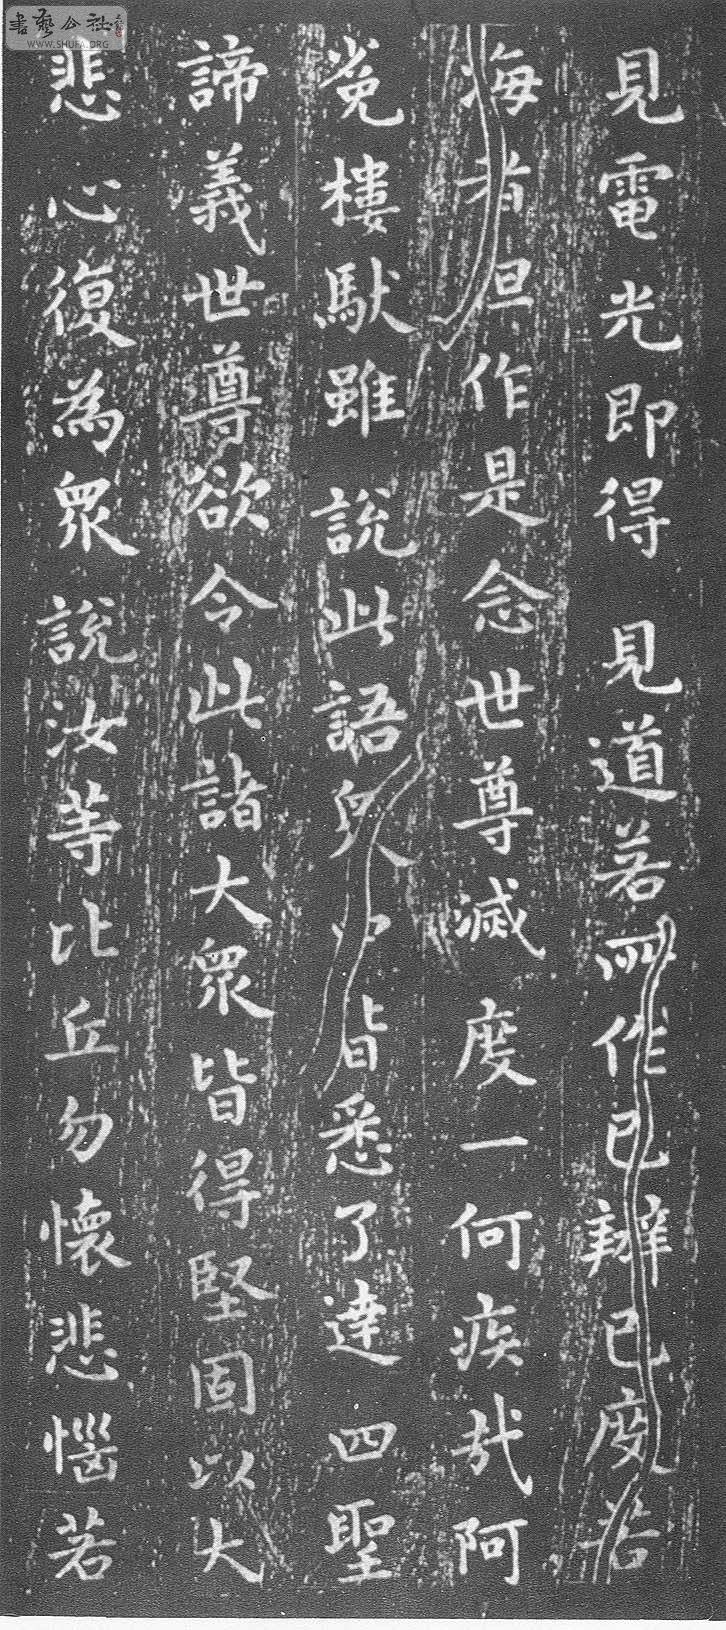 見電光即得見道若所作已辦已度苦
海者但作是念世尊滅度一何疾哉阿
㝹樓馱雖說此語眾中皆悉了達四聖
諦義世尊欲令此諸大眾皆得堅固以大
悲心復為眾說汝等比丘勿懷悲惱若
書藝公社
WWW.SHUFA.ORG